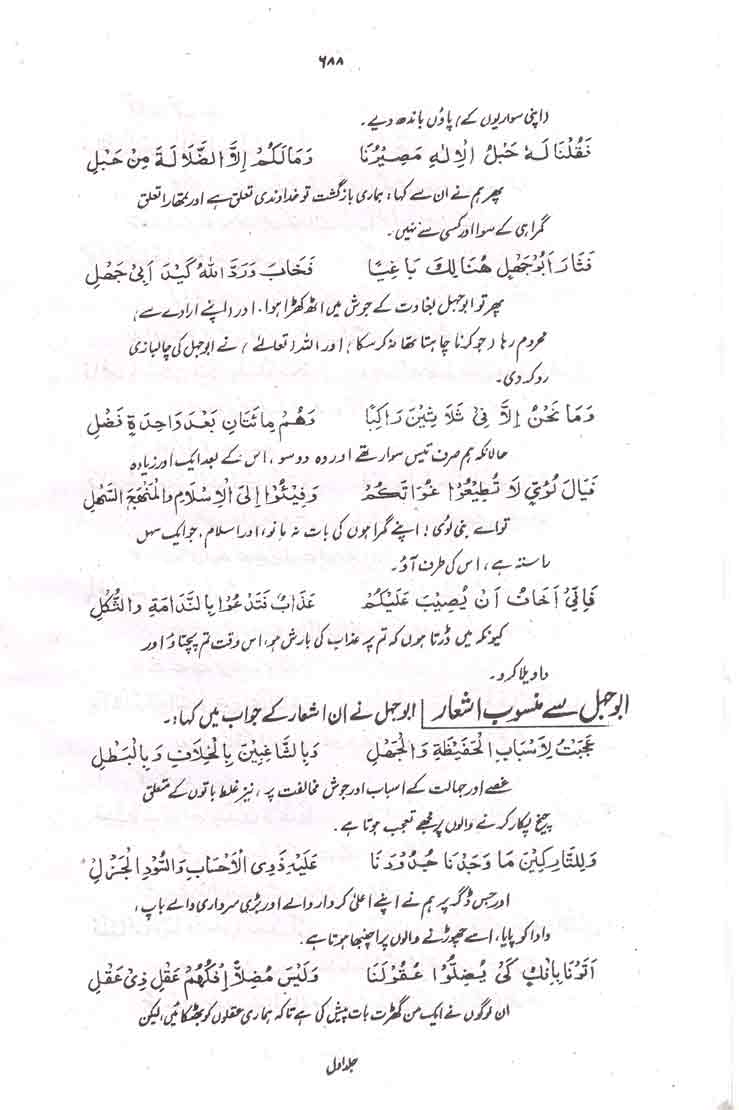 ۶۸۸
(اپنی سواریوں کے) پاؤں باندھ دیے۔
فَقُلْنَا لَهٗ حَبْلُ الْاِلٰهِ مَصِيْرُنَا وَمَالَكُمْ اِلَّا الضَّلَالَةَ مِنْ حَبْلِ
پھر ہم نے ان سے کہا: ہماری بازگشت تو خداوندی تعلق ہے اور تمھارا تعلق
گمراہی کے سوا اور کسی سے نہیں۔
فَثَارَ اَبُوْجَهْلٍ هُنَالِكَ بَاغِيًا فَخَابَ وَرَدَّ اللّٰهُ كَيْدَ اَبِيْ جَهْلِ
پھر تو ابوجہل بغاوت کے جوش میں اٹھ کھڑا ہوا۔ اور (اپنے ارادے سے)
محروم رہا (جو کرنا چاہتا تھا نہ کر سکا) اور اللہ (تعالےٰ) نے ابوجہل کی چالبازی
رد کر دی۔
وَمَا نَحْنُ اِلَّا فِيْ ثَلَاثِيْنَ رَاكِبًا وَهُمْ مِائَتَانِ بَعْدَ وَاحِدَةٍ فَضْلِ
حالانکہ ہم صرف تیس سوار تھے اور وہ دو سو، اس کے بعد ایک اور زیادہ
فَيَالَ لُؤَيٍّ لَا تُطِيْعُوْا غُوَاتَكُمْ وَفِيْئُوْا اِلَى الْاِسْلَامِ وَالْمَنْهَجِ السَّهْلِ
تو اے بنی لوی! اپنے گمراہوں کی بات نہ مانو، اور اسلام، جو ایک سہل
راستہ ہے، اس کی طرف آؤ۔
فَاِنِّيْ اَخَافُ اَنْ يُصِيْبَ عَلَيْكُمْ عَذَابٌ فَتَدْعُوْا بِالنَّدَامَةِ وَالثُّكْلِ
کیونکہ میں ڈرتا ہوں کہ تم پر عذاب کی بارش ہو، اس وقت تم پچتاؤ اور
واویلا کرو۔
ابوجہل سے منسوب اشعار ابوجہل نے ان اشعار کے جواب میں کہا:۔
عَجِبْتُ لِاَسْبَابِ الْحَفِيْظَةِ وَالْجَهْلِ وَبِالشَّاغِبِيْنَ بِالْخِلَافِ وَبِالْبَطْلِ
غصے اور جہالت کے اسباب اور جوش مخالفت پر، نیز غلط باتوں کے متعلق
چیخ پکار کرنے والوں پر مجھے تعجب ہوتا ہے۔
وَلِلتَّارِكِيْنَ مَا وَجَدْنَا جُدُوْدَنَا عَلَيْهِ ذَوِي الْاَحْسَابِ وَالسُّوْدِ الْجَزْلِ
اور جس ڈگر پر ہم نے اپنے اعلیٰ کردار والے اور بڑی سرداری والے باپ،
دادا کو پایا، اسے چھوڑنے والوں پر اچنبھا ہوتا ہے۔
اَتَوْنَا بِاِفْكٍ كَيْ يُضِلُّوْا عُقُوْلَنَا وَلَيْسَ مُضِلًّا اِفْكُهُمْ عَقْلَ ذِيْ عَقْلِ
ان لوگوں نے ایک من گھڑت بات پیش کی ہے تاکہ ہماری عقلوں کو بھٹکائیں، لیکن
جلد اول